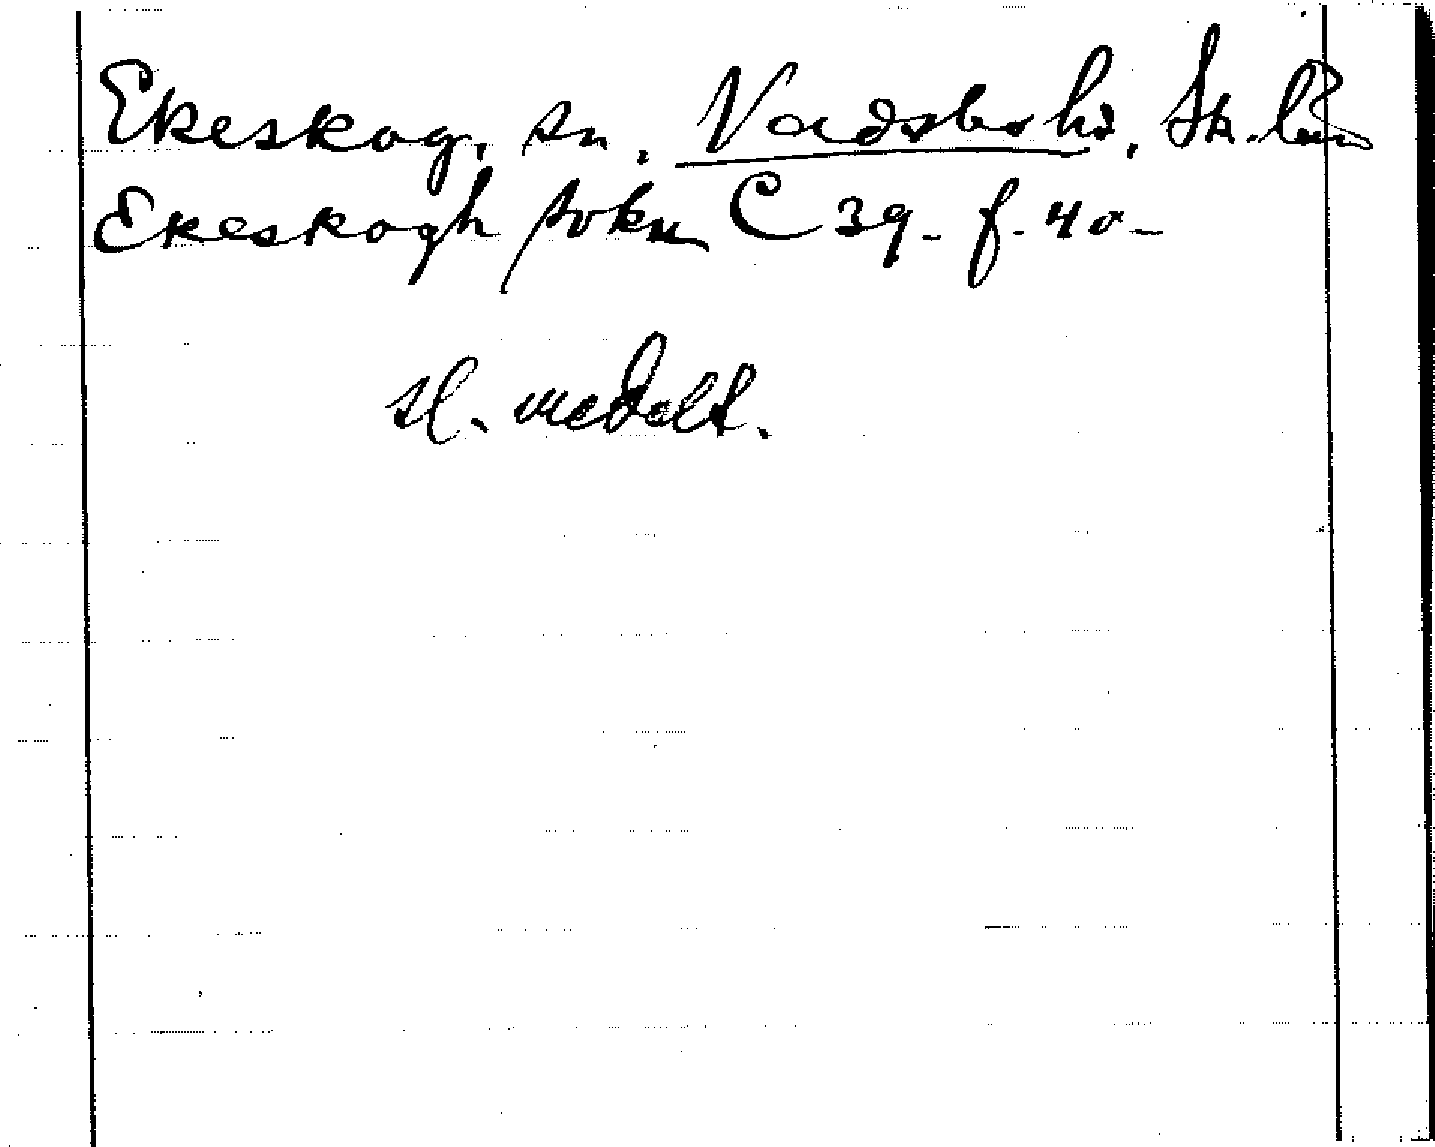 Ekeskog, sn, Vadsbo hd, Sk. län
Ekeskogh sokn C 39. f. 40.
sl. medelt.